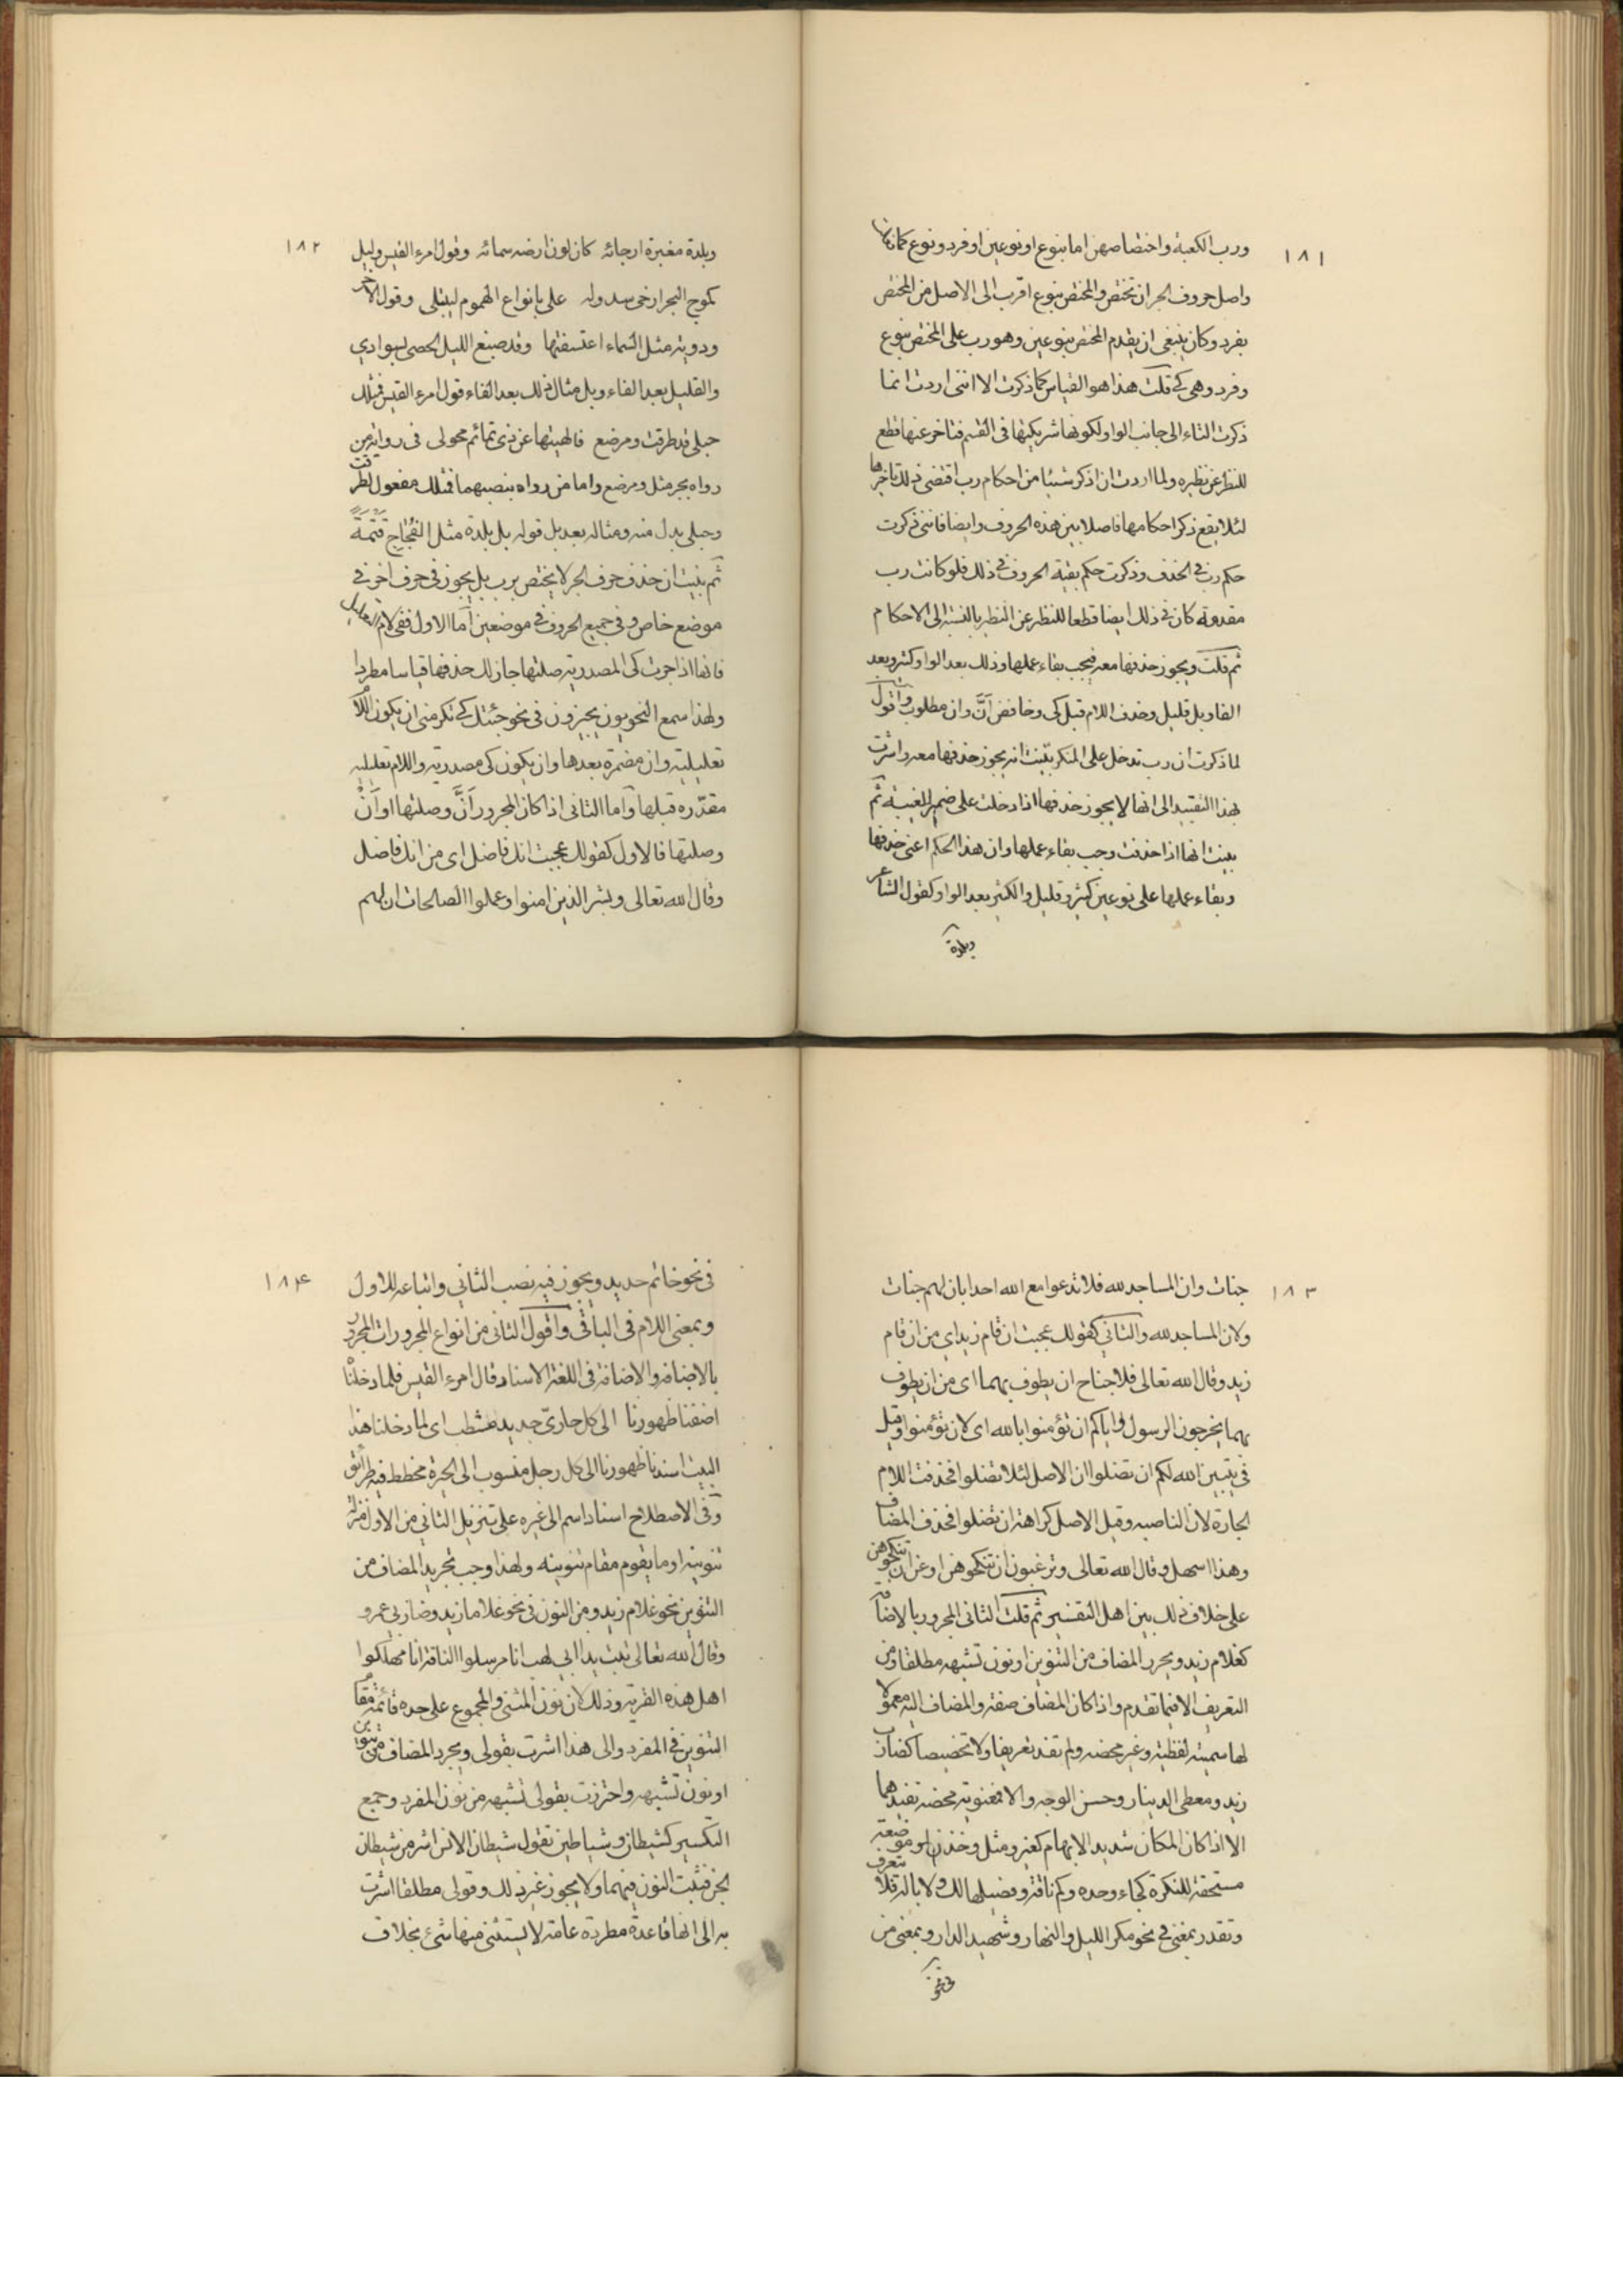 ١٨١
ورب الكعبة واختصاصهن اما بنوع او نوعين او فرد ونوع كمانها
واصل حروف الجر ان تختص والمختص بنوع اقرب الى الاصل من المختص
بفرد وكان ينبغى ان يقدم المختص بنوعين وهو رب على المختص بنوع
وفرد وهى كے قلت هذا هو القياس كما ذكرت الا اننى اردت انما
ذكرت التاء الى جانب الواو لكونها شريكتها فى القسم فتاخر عنها قطع
للنظر عن نظيره ولما اردت ان اذكر شيئا من احكام رب اقتضى ذلك تاخرها
لئلا يقع ذكر احكامها فاصلا بين هذه الحروف وايضا فاننى ذكرت
حكم رب فے الحذف وذكرت حكم بقية الحروف فے ذلك فلو كانت رب
مقدمة كان فے ذلك ايضا قطعا للنظر عن النظير بالنسبة الى الاحكام
ثم قلت ويجوز حذفها معه فيجب بقاء عملها وذلك بعد الواو كثير وبعد
الفا وبل قليل وحذف اللام قبل كى وخافض انَّ وان مطلوب واقول
لما ذكرت ان رب تدخل على المنكر بيّنت انه يجوز حذفها معه واشرت
بهذا التقييد الى انها لا يجوز حذفها اذا دخلت على ضمير الغيبة ثم
بينت انها اذا حذفت وجب بقاء عملها وان هذا الحكم اعنى حذفها
وبقاء عملها على نوعين كثير وقليل والكثير بعد الواو كقول الشاعر
وبلدة
١٨٢
وبلدة مغبرة ارجائه كان لون ارضه سمائه وقول امرء القيس وليل
كموج البحر ارخى سدوله على بانواع الهموم ليبتلى وقول الاخر
ودوية مثل السماء اعتسفتها وقد صبغ الليل الحصى بسوادي
والقليل بعد الفاء وبل مثال ذلك بعد الفاء قول امرء القيس فمثلك
حبلى قد طرقت ومرضع فالهيتها عن ذى تمائم محولى فى رواية من
رواه بجر مثل ومرضع واما من رواه بنصبهما فمثلك مفعول لطرقت
وحبلى بدل منه ومثاله بعد بل قوله بل بلدة مثل الفجاج قتمة
ثم بينت ان حذف حرف الجر لا يختص برب بل يجوز فى حرف اخر فے
موضع خاص وفى جميع الحروف فے موضعين اما الاول ففى لام التعليل
فانها اذا جرت كى المصدرية وصلتها جاز لك حذفها قياسا مطردا
ولهذا سمع النحويون يجيزون فى نحو جئتك كے تكرمنى ان يكون كى
تعليلية وان مضمرة بعدها وان يكون كى مصدرية واللام تعليلية
مقدّره قبلها واما الثانى اذا كان المجرور انَّ وصلتها او انْ
وصلتها فالاول كقولك عجبت انك فاضل اى من انك فاضل
وقال الله تعالى وبشر الذين امنوا وعملوا الصالحات ان لهم
١٨٣
جنات وان المساجد لله فلا تدعوا مع الله احدا بان لهم جنات
ولان المساجد لله والثاني كقولك عجبت ان قام زيد اي من ان قام
زيد وقال الله تعالى فلا جناح ان يطوف بهما اى من ان يطوف
بهما يخرجون الرسول واياكم ان تؤمنوا بالله اى لان تؤمنوا وقيل
فى يتبين الله لكم ان تضلوا ان الاصل لئلا تضلوا فحذفت اللام
الجارة لان الناصبه وقيل الاصل كراهة ان تضلوا فحذف المضاف
وهذا اسهل وقال الله تعالى وترغبون ان تنكحوهن او عن ان تنكحوهن
على خلاف ذلك بين اهل التفسير ثم قلت الثانى المجرور بالاضافة
كغلام زيد ويجرد المضاف من التنوين او نون تشبهه مطلقا ومن
التعريف الا فيما تقدم واذا كان المضاف صفة والمضاف اليه معمولا
لها سميته لفظية وغير محضه ولم تفد تعريفا ولا تخصيصا كضارب
زيد ومعطى الدينار وحسن الوجه والا فمعنوية محضة تفيدهما
الا اذا كان المكان شديد الابهام كغير ومثل وخذن او موضعه
مستحقة للنكرة كجاء وحده وكم ناقة وفصيلها لك ولا ابا له فلا يتعرف
وتقدر بمعنى فے نحو مكر الليل والنهار وشهيد الدار وبمعنى من
فى نحو
١٨٤
فى نحو خاتم حديد ويجوز فيه نصب الثاني واتباعه للاول
وبمعنى اللام فى الباقي واقول الثانى من انواع المجرورات المجرور
بالاضافه والاضافة فى اللغة الاسناد قال امرء القيس فلما دخلنا
اضفنا ظهورنا الى كل حاريّ جديد مشطب اى لما دخلنا هذا
البيت اسندنا ظهورنا الى كل رحل منسوب الى الحيرة مخطط فيه طرائق
وفى الاصطلاح اسناد اسم الى غيره على تنزيل الثاني من الاول منزلة
تنوينه او ما يقوم مقام تنوينه ولهذا وجب تجريد المضاف من
التنوين نحو غلام زيد ومن النون فى نحو غلاما زيد وضاربي عمرو
وقال الله تعالى تبت يدا ابي لهب انا مرسلوا الناقة انا مهلكوا
اهل هذه القرية وذلك لان نون المثنى والمجموع على حده قائمة مقام
التنوين فے المفرد والى هذا اشرت بقولى ويجرد المضاف من تنوين
او نون تشبهه واحترزت بقولى تشبهه من نون المفرد وجمع
التكسير كشيطان وشياطين تقول شيطان الانس اشر من شيطان
الجن فتثبت النون فيهما ولا يجوز غير ذلك وقولى مطلقا اشرت
به الى انها قاعدة مطردة عامة لا يستثنى منها شئ بخلاف